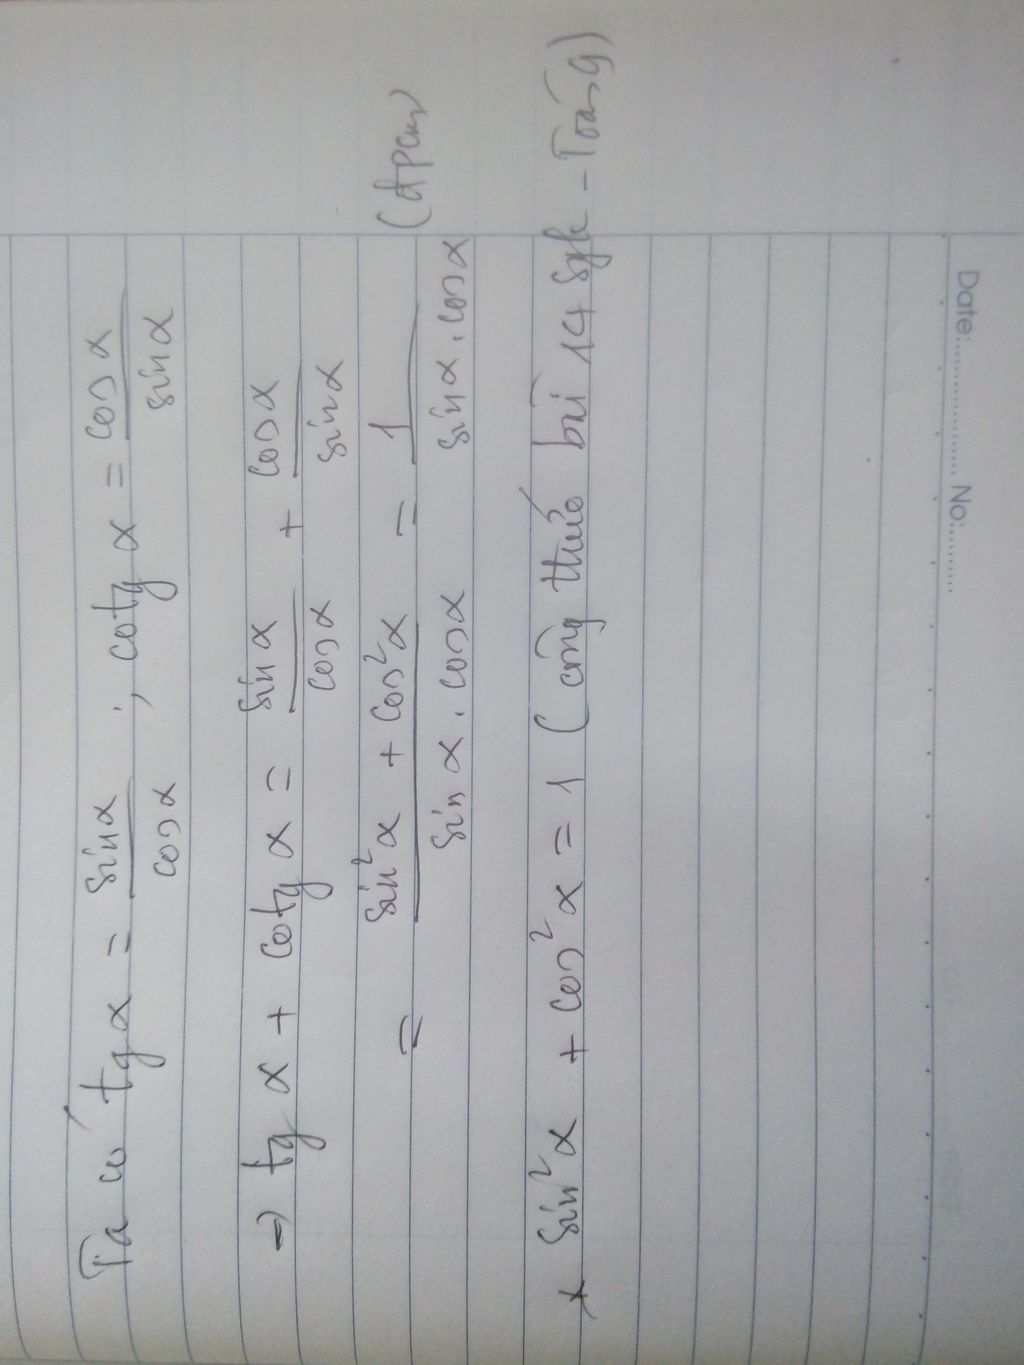 Ta có tg α = sin α / cos α ; cotg α = cos α / sin α
⇒ tg α + cotg α = sin α / cos α + cos α / sin α
= sin²α + cos²α / sin α . cos α = 1 / sin α . cos α (đpcm)
* sin²α + cos²α = 1 (công thức bài 14 Sgk - Toán 9)
Date:.................... No:..........